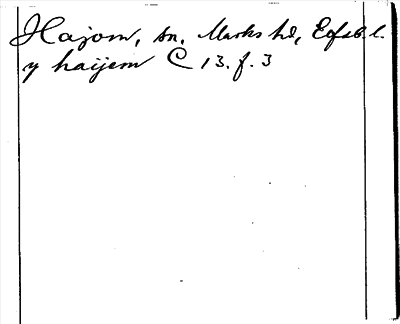 Hajom, sn, Marks hd, Eofsb. l.
y haijem C 13. f. 3